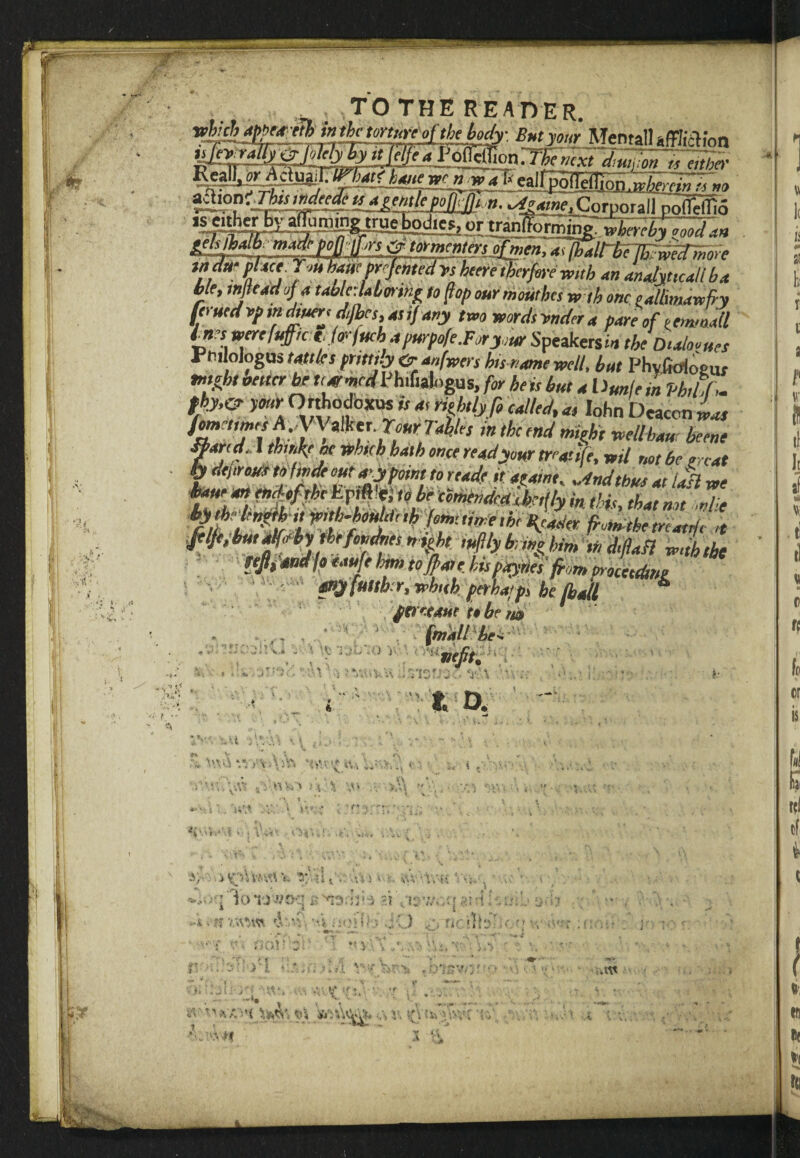 TO THE READER.
which appeareth in the torture of the body. But your Mentall affliction
is severally & solely by it selfe a Possession. The next diuision is either
Reall, or Actuall. What? haue we now a Reall possession, wherein is no
action? This indeede is a gentle possession. Againe, Corporall possessiō
is either by assuming true bodies, or transforming. whereby good an
gels shalbe made possessors & tormenters of men, as shall be shewed more
in due place. You haue presented vs heere therfore with an analyticall ba
ble, instead of a table: laboring to stop our mouthes with one gallimawfry
serued vp in diuers dishes, as if any two words vnder a pare of gemmall
lines were sufficient for such a purpose. For your Speakers in the Dialogues
Philologus tattles prittily & answers his name well, but Physiologus
might better be tearmed Phisialogus, for he is but a Dunse in Philoso-
phy, & your Orthodoxus is as rightly so called, as Iohn Deacon was
sometimes A. VValker. Your Tables in the end might well haue beene
spared. I thinke he which hath once read your treatise, wil not be great
ly desirous to finde out any point to reade it againe. And thus at last we
haue an end of the Epistle, to be comended cheifly in this, that not onlie
by the length it with-houldeth somtime the Reader from the treatise it
selfe, but also by the fondnes might iustly bring him in distast with the
rest, and so cause him to spare his paynes from proceeding
any further, which perhapps he shall
perceaue to be no
small be-
nefit.
I. D.